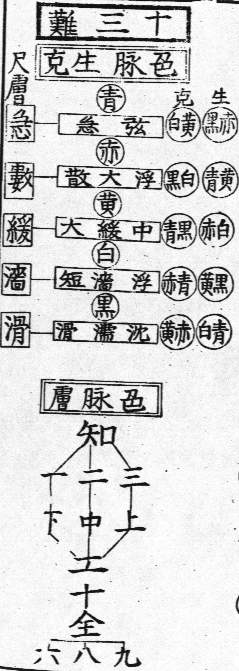 十三難
色脉生克
生 克
尺膚
青
赤黑 黃白 弦急 急
赤
黃青 白黑 浮大散 數
黃
白赤 黑青 中緩大 緩
白
黑黃 青赤 浮濇短 濇
黑
青白 赤黃 沈濡滑 滑
色脉膚
知
三 二 一
上 中 下
工
十
全
九 八 六